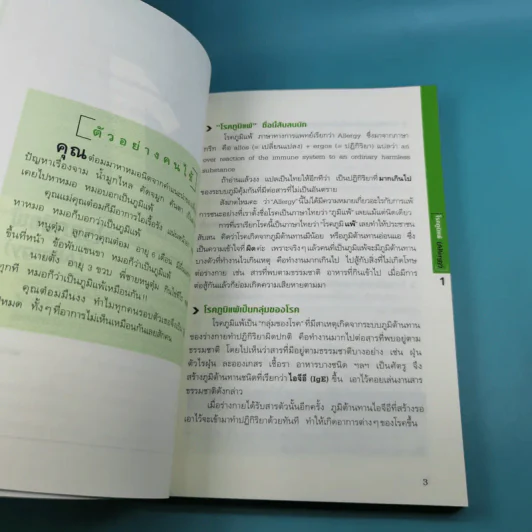 ตัวอย่างคนไข้
คุณต่อมมาหาหมอ
ปัญหาเรื่องจาม น้ำมูกไหล คัดจมูก คันตา
เคยไปหาหมอ หมอบอกเป็นภูมิแพ้
คุณแม่คุณต่อมก็มีอาการไอเรื้อรัง
หาหมอ หมอก็บอกว่าเป็นภูมิแพ้
หนูตุ่ม ลูกสาวคุณต่อม อายุ 6 เดือน
ขึ้นที่หน้า ซื้อพับแขนขา หมอก็ว่าเป็นภูมิแพ้
นายตั้ง อายุ 3 ขวบ พี่ชายหนูตุ่ม
ทุกที หมอก็ว่าเป็นภูมิแพ้เหมือนกัน!!
คุณต่อมมึนงง ทำไมทุกคนรอบตัวเธอจึงเป็น
หมด ทั้งๆ ที่อาการไม่เห็นเหมือนกันเลยสักคน
"โรคภูมิแพ้" ชื่อนี้สับสนนัก
โรคภูมิแพ้ ภาษาทางการแพทย์เรียกว่า Allergy ซึ่งมาจากภาษา
กรีก คือ allos (= เปลี่ยนแปลง) + ergos (= ปฏิกิริยา) แปลว่า an
over reaction of the immune system to an ordinary harmless
substance
ถ้าอ่านแล้วงง แปลเป็นไทยให้อีกทีว่า เป็นปฏิกิริยาที่มากเกินไป
ของระบบภูมิคุ้มกันที่มีต่อสารที่ไม่เป็นอันตราย
สังเกตไหมคะว่า "Allergy" นี้ไม่ได้มีความหมายเกี่ยวอะไรกับการแพ้
การชนะอย่างที่เราตั้งชื่อโรคเป็นภาษาไทยว่า "ภูมิแพ้" เลยแม้แต่นิดเดียว
การที่เราเรียกโรคนี้เป็นภาษาไทยว่า โรคภูมิแพ้ เลยทำให้ประชาชน
สับสน คิดว่าโรคเกิดจากภูมิต้านทานมีน้อย หรือภูมิต้านทานอ่อนแอ ซึ่ง
เป็นความเข้าใจที่ผิดค่ะ เพราะจริงๆ แล้วคนที่เป็นภูมิแพ้จะมีภูมิต้านทาน
บางตัวที่ทำงานไวเกินเหตุ คือทำงานมากเกินไป ไปสู้กับสิ่งที่ไม่เกิดโทษ
ต่อร่างกาย เช่น สารที่พบตามธรรมชาติ อาหารที่กินเข้าไป เมื่อมีการ
ต่อสู้กันแล้วก็ย่อมเกิดความเสียหายตามมา
โรคภูมิแพ้เป็นกลุ่มของโรค
โรคภูมิแพ้เป็น "กลุ่มของโรค" ที่มีสาเหตุเกิดจากระบบภูมิต้านทาน
ของร่างกายทำปฏิกิริยาผิดปกติ คือทำงานมากไปต่อสารที่พบอยู่ตาม
ธรรมชาติ โดยไปเห็นว่าสารที่มีอยู่ตามธรรมชาติบางอย่าง เช่น ฝุ่น
ตัวไรฝุ่น ละอองเกสร เชื้อรา อาหารบางชนิด ฯลฯ เป็นศัตรู จึง
สร้างภูมิต้านทานชนิดที่เรียกว่าไอจีอี (IgE) ขึ้น เอาไว้คอยเล่นงานสาร
ธรรมชาติดังกล่าว
เมื่อร่างกายได้รับสารตัวนั้นอีกครั้ง ภูมิต้านทานไอจีอีที่สร้างรอ
เอาไว้จะเข้ามาทำปฏิกิริยาด้วยทันที ทำให้เกิดอาการต่างๆ ของโรคขึ้น
โรคภูมิแพ้ (Allergy)
1
3